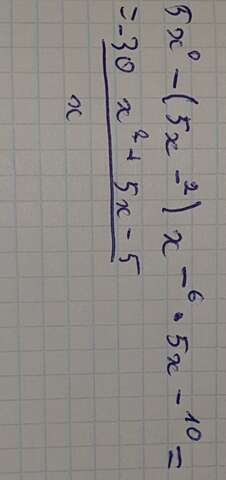 5x⁰ - (5x - ²) x - ⁶ · 5x - ¹⁰ =
= -30 x² + 5x - 5
x